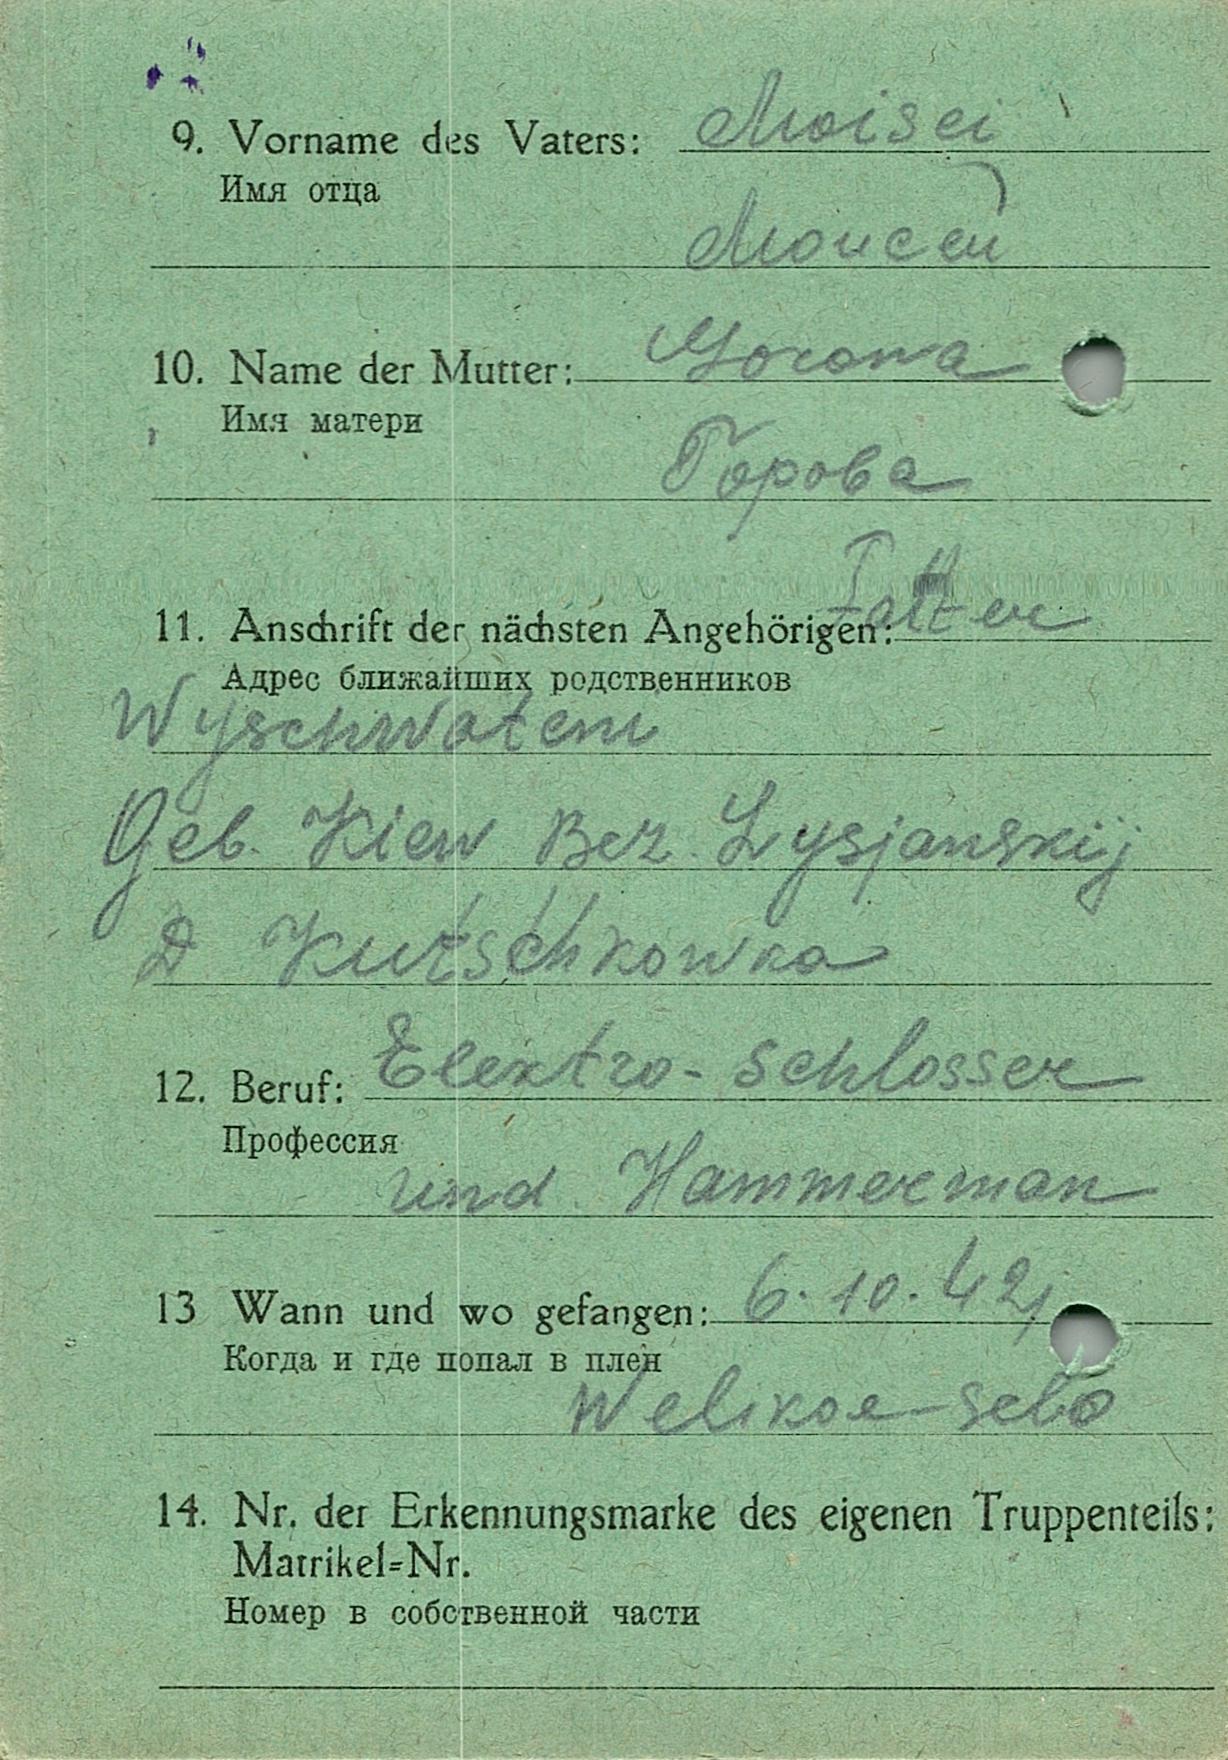 9. Vorname des Vaters: Moisei
Имя отца
Моисей
10. Name der Mutter: Gorowa
Имя матери
Горова
11. Anschrift der nächsten Angehörigen:
Адрес ближайших родственников
Wyschwateni
Geb. Kiew Bez. Lysjanskij
D Kutschkowka
12. Beruf: Elektro-Schlosser
Профессия
und Hammerman
13 Wann und wo gefangen: 6.10.42
Когда и где попал в плен
Welikoe selo
14. Nr. der Erkennungsmarke des eigenen Truppenteils:
Matrikel=Nr.
Номер в собственной части